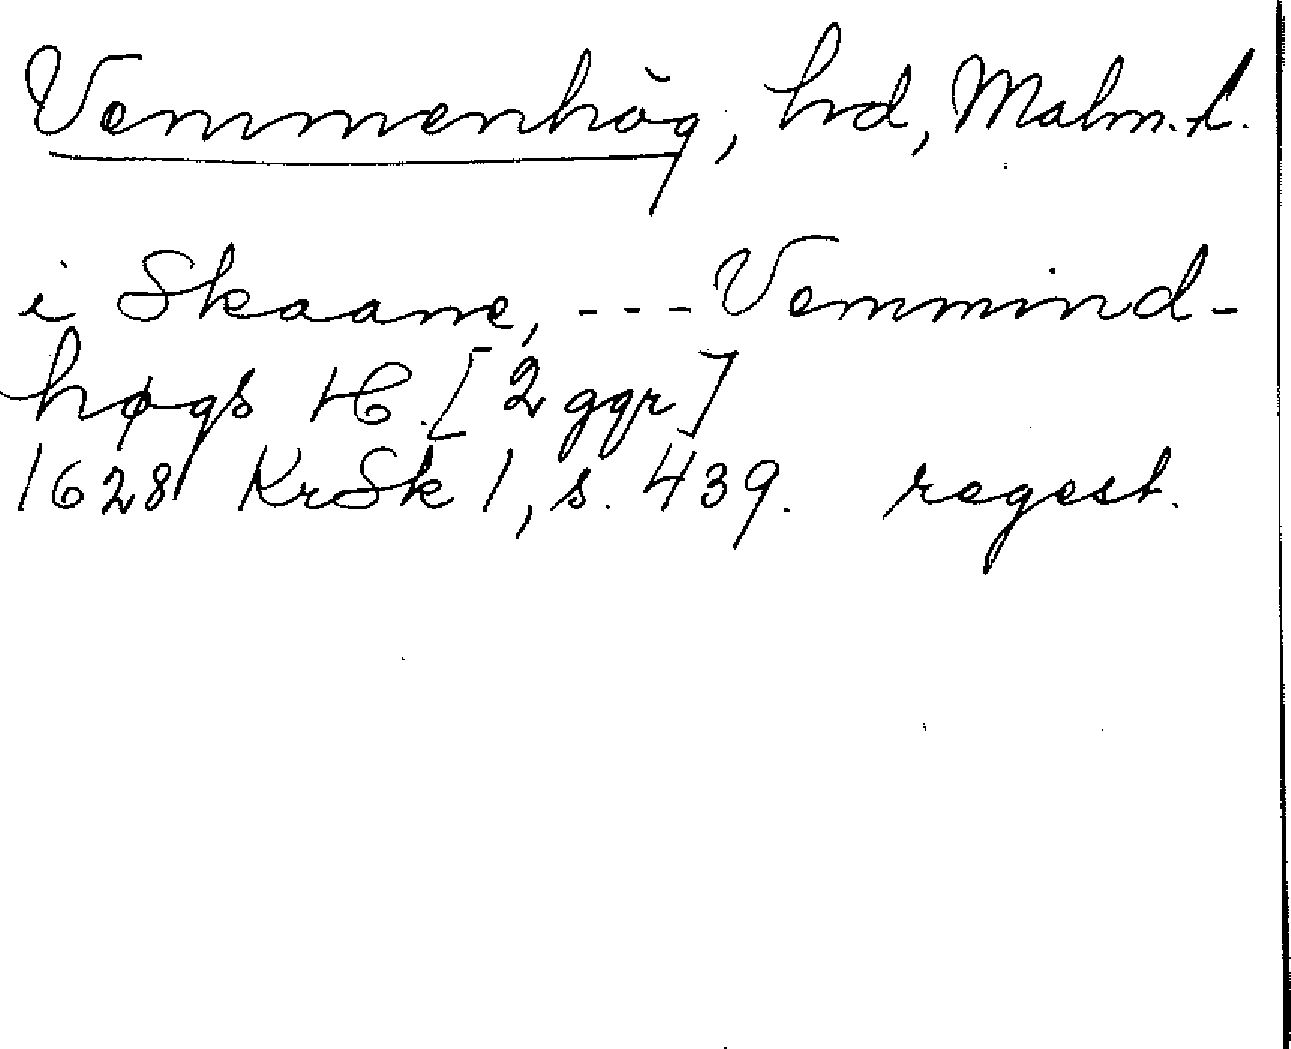 Vemmenhög, hd, Malm. l.
i Skaane, --- Vemmind-
høgs H. [2 ggr]
1628 KrSk 1, s. 439. regest.